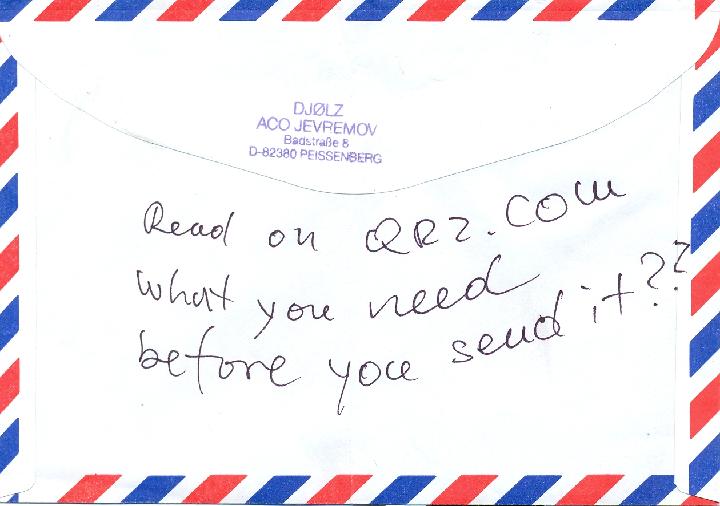 DJØLZ
ACO JEVREMOV
Badstraße 8
D-82380 PEISSENBERG
Read on QRZ.COM
what you need
before you send it??